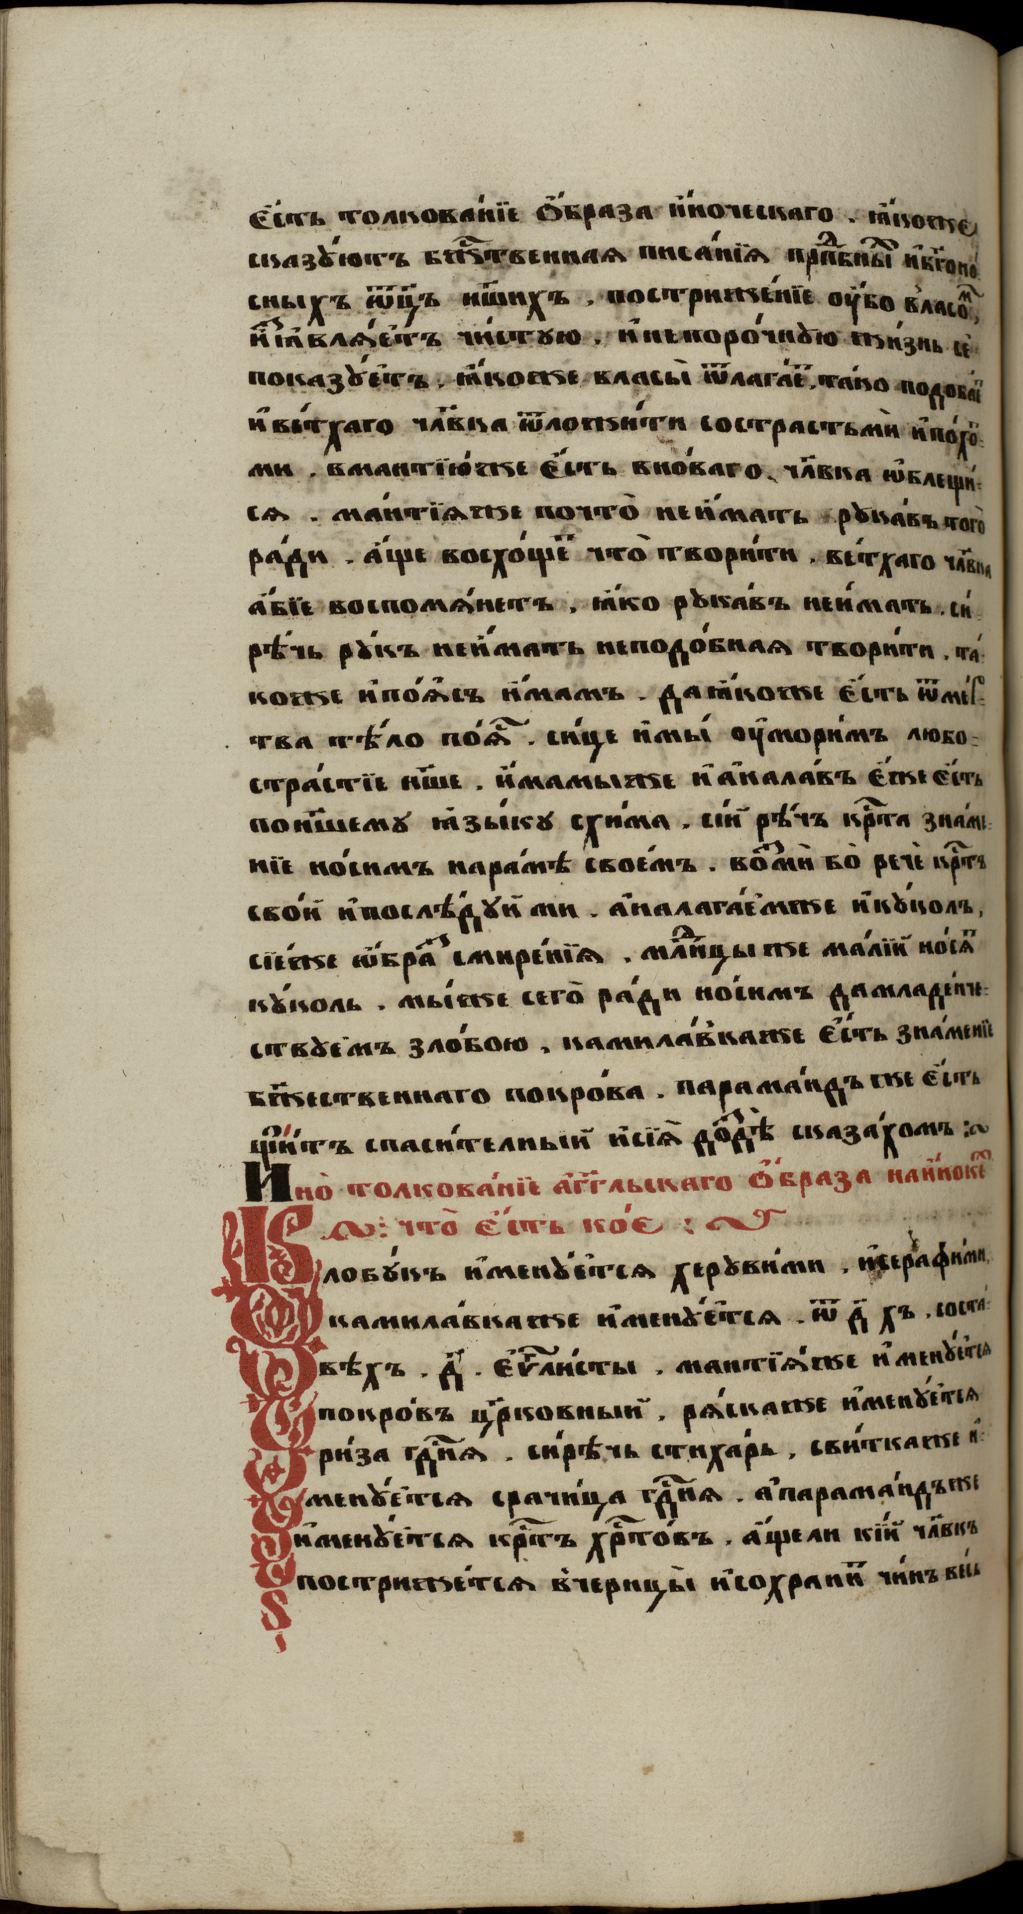 є҆́сть толкова́нїе ѻ҆́браза и҆́ноческаго . ꙗ҆́коже
сказꙋ́ютъ бж҃твенная писа́нїѧ прпⷣбны́ⷯ и҆бг҃оно́
сныхъ ѿц҃ъ нш҃ихъ . пострижсе́нїе ѹ҆́бо власо́ⷨ,
и҆з̾ꙗвлѧ́етъ чи́стую . и҆непоро́чнꙋю жи́знь сѐ
показꙋ́етъ . ꙗ҆́коже власы̀ ѿлага́еⷨ, та́ко подоба́еⷮ
и҆ве́тхаго чл҃вка ѿложи́ти сострастьмѝ и҆по́хоⷮ
ми . вманті́юже є҆́сть вно́ваго чл҃вка ѡ҆блещи́
сѧ . ма́нтїѧже почто̀ неи҆́мать рꙋка́въ того̀
ра́ди . а҆́ще восхо́щеⷮ что̀ твори́ти . ве́тхаго чл҃вка
а҆́бїе воспомѧ́нетъ , ꙗ҆́ко рꙋка́въ неи҆́мать . си́
рѣ́чь рꙋ́къ неи҆́мать неподо́бнаѧ твори́ти . та́
коже и҆по́ѧсъ и҆́мамъ . даꙗ҆́коже є҆́сть ѿме́рⷭ
тва тѣ́ло по́ѧⷭ . си́це и҆мы́ ѹ҆мори́мъ любо
стра́стїе нш҃е . и҆́мамыже и҆а҆нала́въ є҆́же є҆́сть
пона́шему ꙗ҆зы́ку схи́ма . сі́й рѣ́чь крⷭ҇та зна́ме
нїе но́симъ нара́мѣ свое́мъ . во́змѝ бо̀ речѐ крⷭ҇тъ
сво́й и҆послѣ́дуй ми . а҆налага́емже и҆кꙋ́колъ ,
сїе́же ѡ҆́браⷥ смире́нїѧ . млⷣнцы же ма́лїй но́сѧⷮ
кꙋ́коль . мы́же сего̀ ра́ди но́симъ дамладе́нче
ствꙋемъ зло́бою . камила́вкаже є҆́сть зна́менїе
бж҃ественнаго покро́ва . парама́ндъ же є҆́сть
щи́тъ спаси́телный и҆сїѧ̀ до́здѣ сказа́хомъ :~
И҆но̀ толкова́нїе а҆́гг҃льскаго ѻ҆́браза и҆лии҆нокеⷭ
~ : что̀ є҆́сть ко́е : ~
Клобꙋ́къ и҆менꙋ́етсѧ херꙋви́ми . и҆серафи́ми
камила́вкаже и҆менꙋ́етсѧ . ѿ д҃ хъ . соста́
вѣхъ . д҃ . є҆ѵⷢ҇ли́сты . мантїѧ́же и҆менꙋ́етсѧ
покро́въ цр҃ковный . рѧ́скаже и҆менꙋ́етсѧ
ри́за гдⷭ҇нѧ . си́рѣчь стиха́рь . сви́ткаже и҆
менꙋ́етсѧ срачи́ца гдⷭ҇нѧ . а҆парама́ндъже
и҆менꙋ́етсѧ крⷭ҇тъ хрⷭ҇то́въ . а҆́щели кі́й чл҃вкъ
постриже́тсѧ в̾черицы̀ и҆сохрани́ⷮ чи́нъ